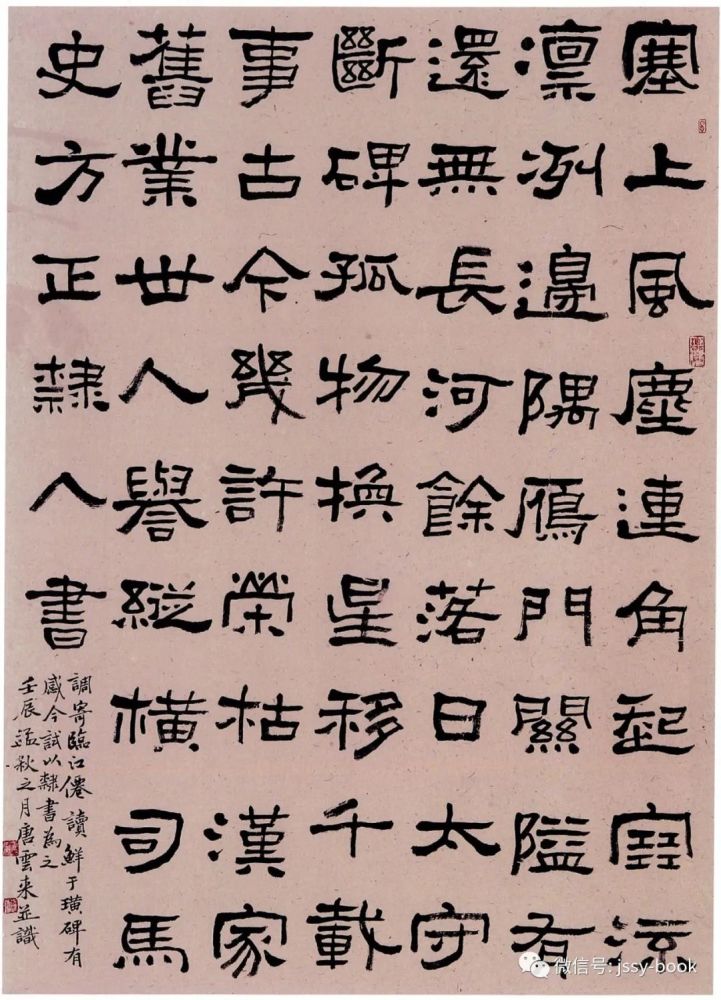 塞上風塵連角起寒流
凜冽邊隅鴈門關隘有
還無長河餘落日太守
斷碑孤物換星移千載
事古今幾許榮枯漢家
舊業世人譽縱橫司馬
史方正隸人書
調寄臨江僊 讀鮮于璜碑有
感今試以隸書為之
壬辰孟秋之月唐雲来並識
微信号: jssy-book